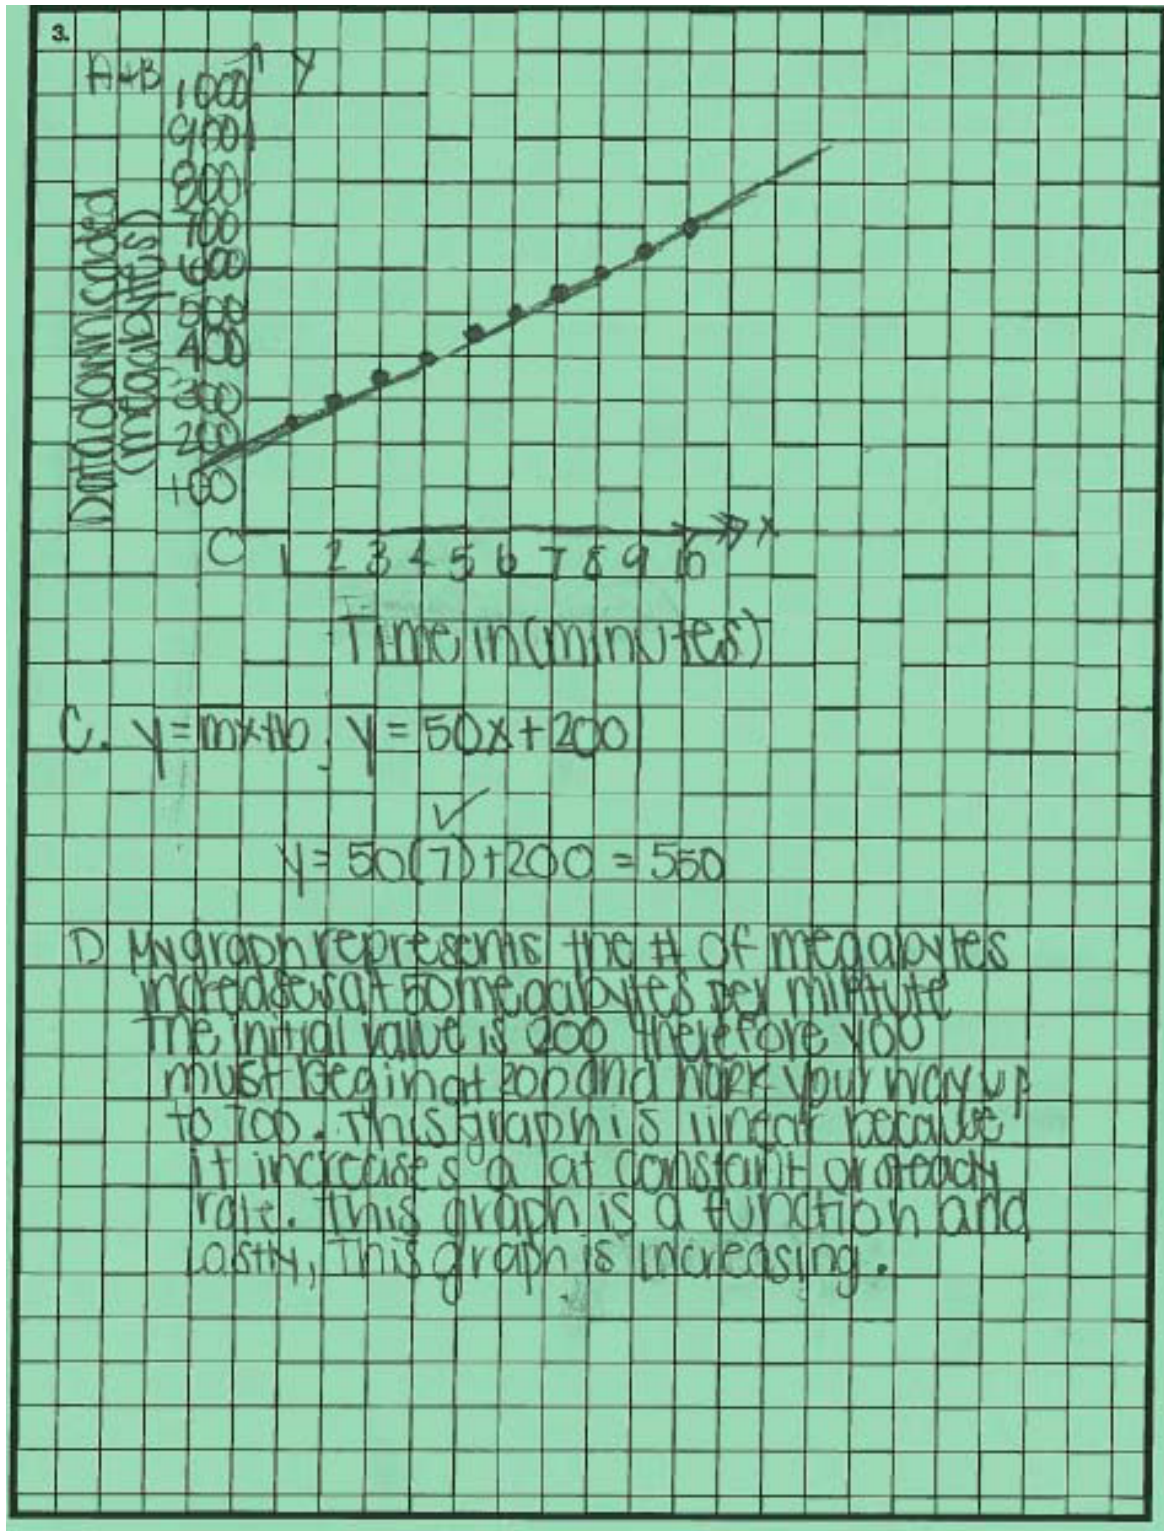 3.
A+B
y
1000
900
800
700
600
500
400
300
200
100
0 1 2 3 4 5 6 7 8 9 10 x
Data downloaded
(megabytes)
Time in (minutes)
C. y=mx+b, y=50x+200
✓
y= 50(7)+200 = 550
D My graph represents the # of megabytes
increases at 50 megabytes per minute
The initial value is 200 therefore you
must begin at 200 and work your way up
to 700. This graph is linear because
it increases a at constant or steady
rate. This graph is a function and
Lastly, This graph is increasing.